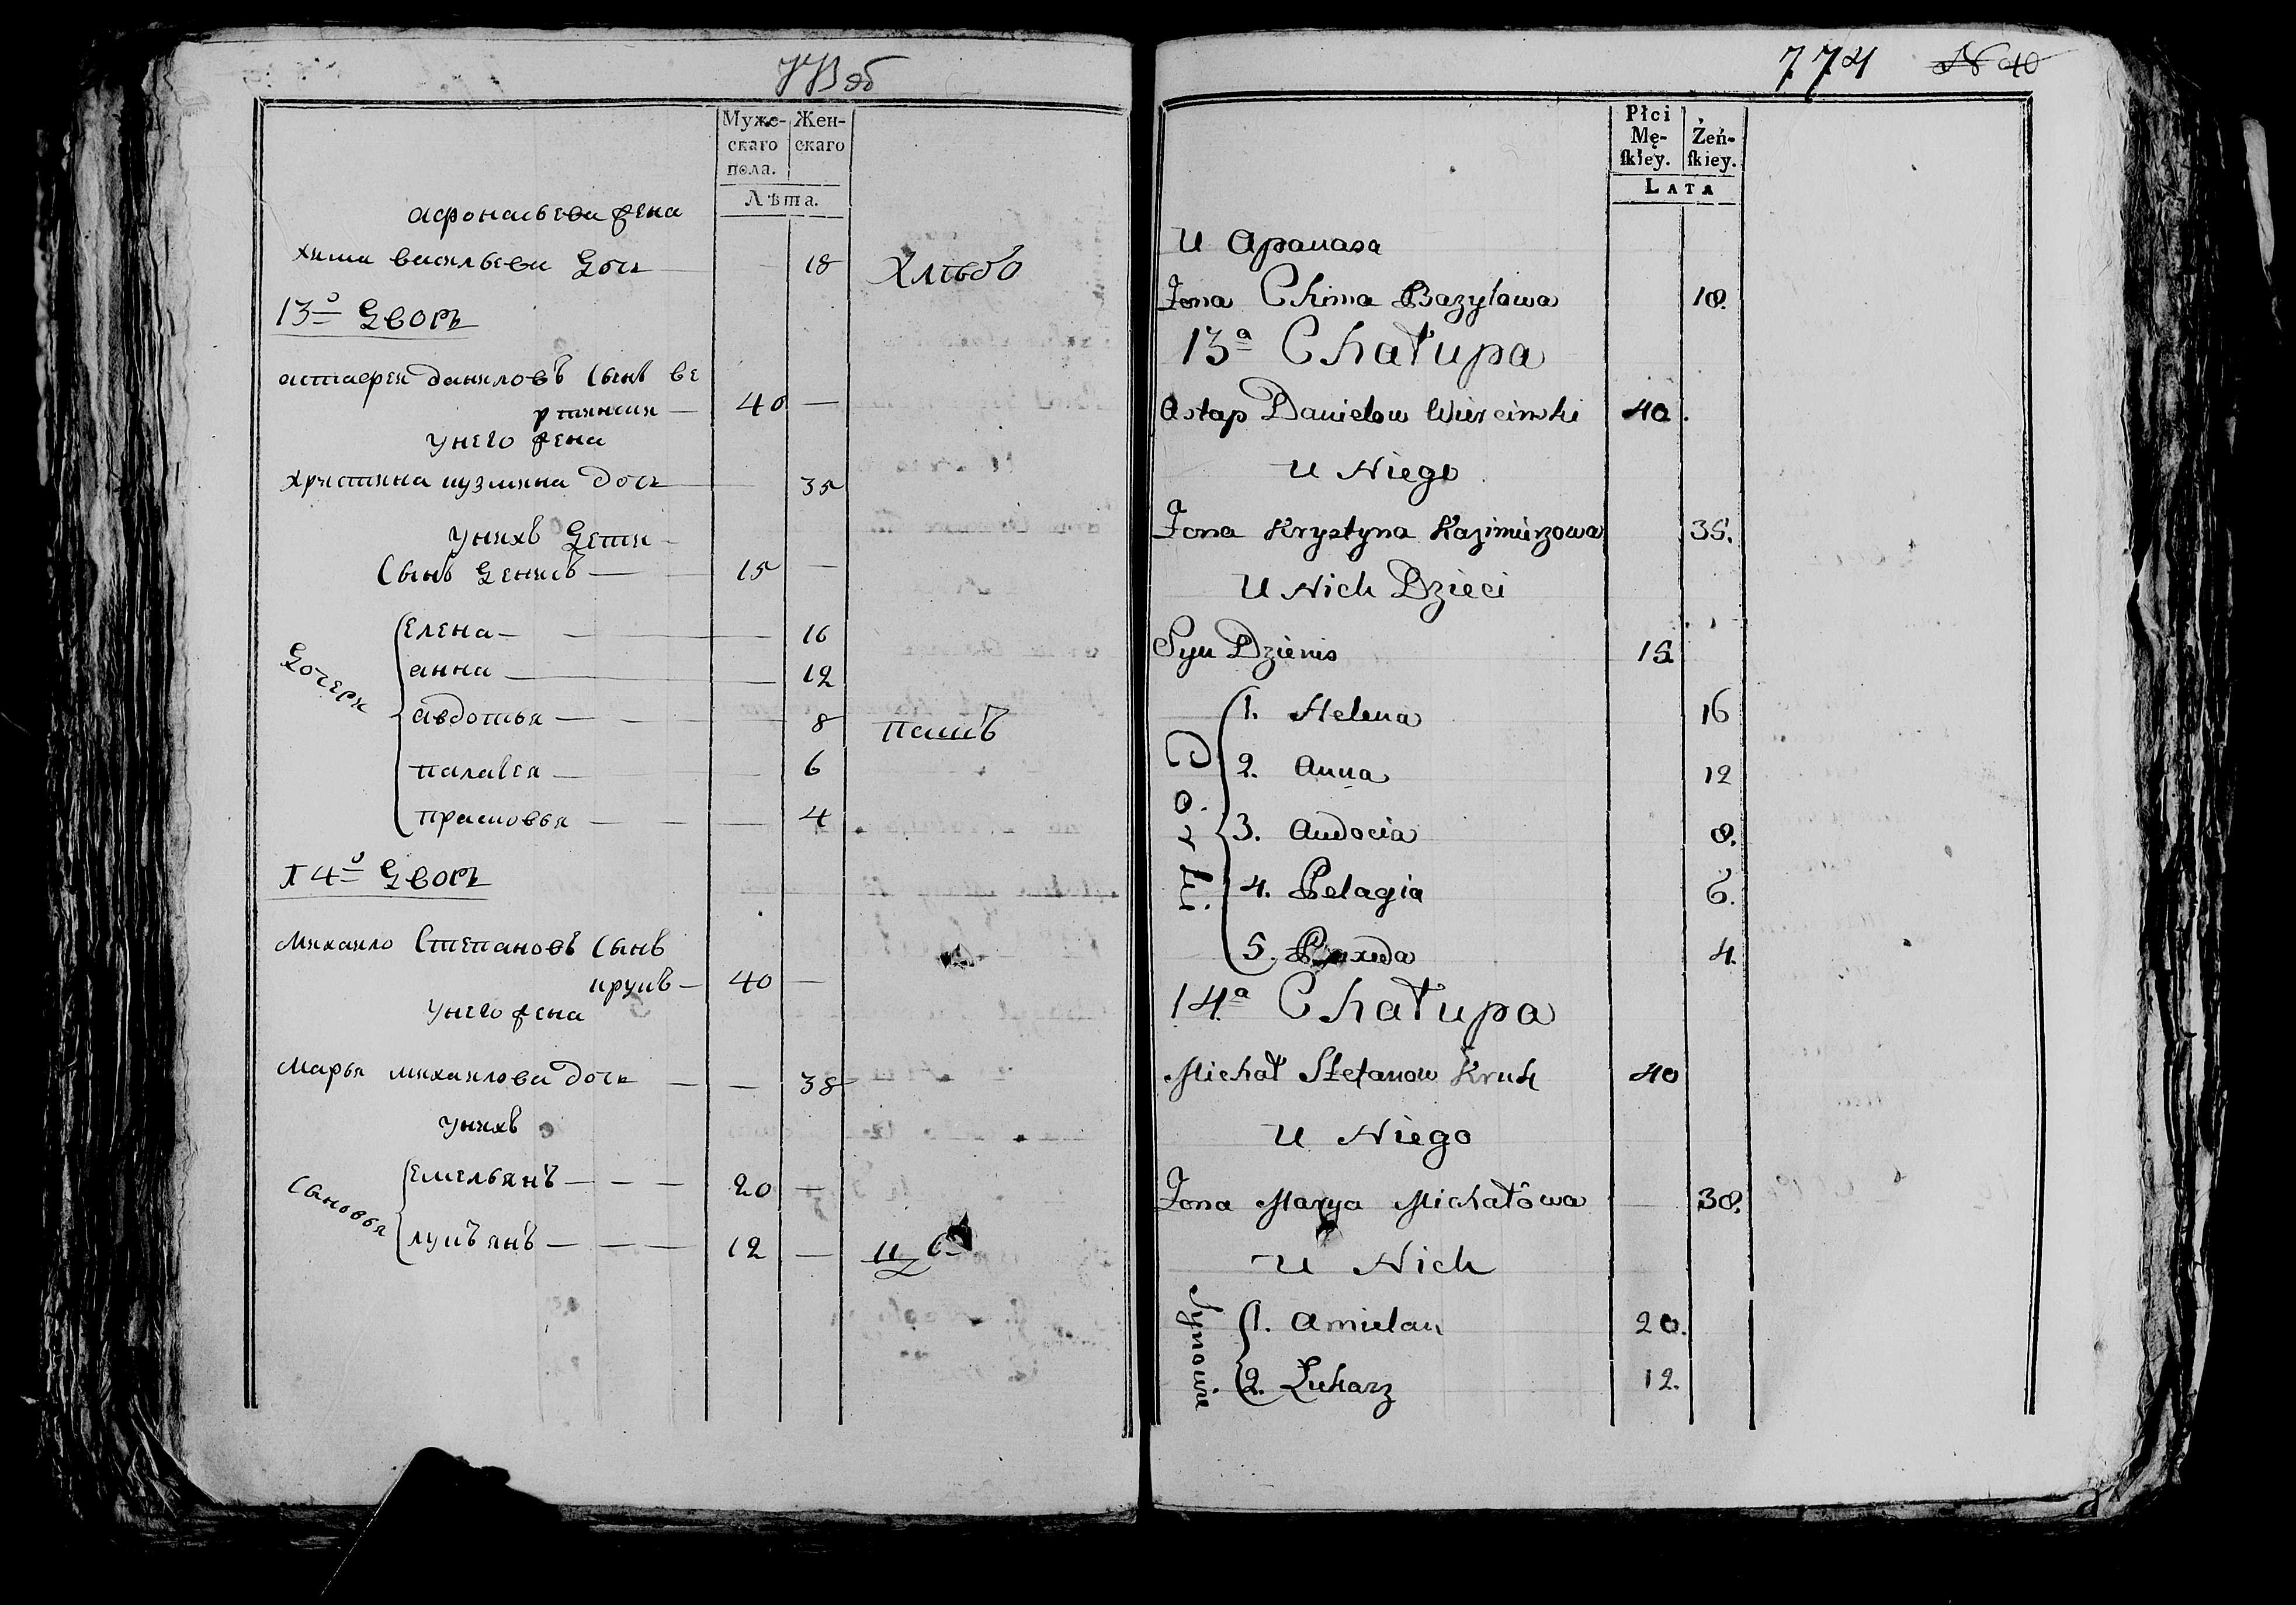 Муже-
скаго
пола.
Жен-
скаго
Лѣта.
афонасьева жена
хима васильева дочь — 18 Хлѣбо
13й дворъ
астафеи даниловъ сынъ ве
рцински — 40 —
унего жена
христина кузмина дочь — 35
унихъ дети
сынъ денисъ — 15 —
дочери
елена — 16
анна — 12
авдотья — 8 пашъ
палагея — 6
прасковья — 4
14й дворъ
михаило степановъ сынъ
крукъ — 40 —
унего жена
марья михаилова дочь — 38
унихъ
сыновья
емельянъ — 20 —
лукъянъ — 12 —
774 N 40
Płci
Mę-
ſkiey.
Żeń-
ſkiey.
LATA
U Apanasa
Żona Chima Bazylowa 18.
13a Chałupa
Astap Danielow Wierciński 40.
U Niego
Żona Krystyna Kazimierzowa 35.
U Nich Dzieci
Syn Dzienis 15
Corki.
1. Helena 16
2. Anna 12
3. Audocia 8.
4. Pelagia 6.
5. Praxeda 4.
14a Chałupa
Michał Stefanow Kruk 40
U Niego
Żona Marya Michałowa 38.
U Nich
Synowie
1. Amielan 20.
2. Łukasz 12.